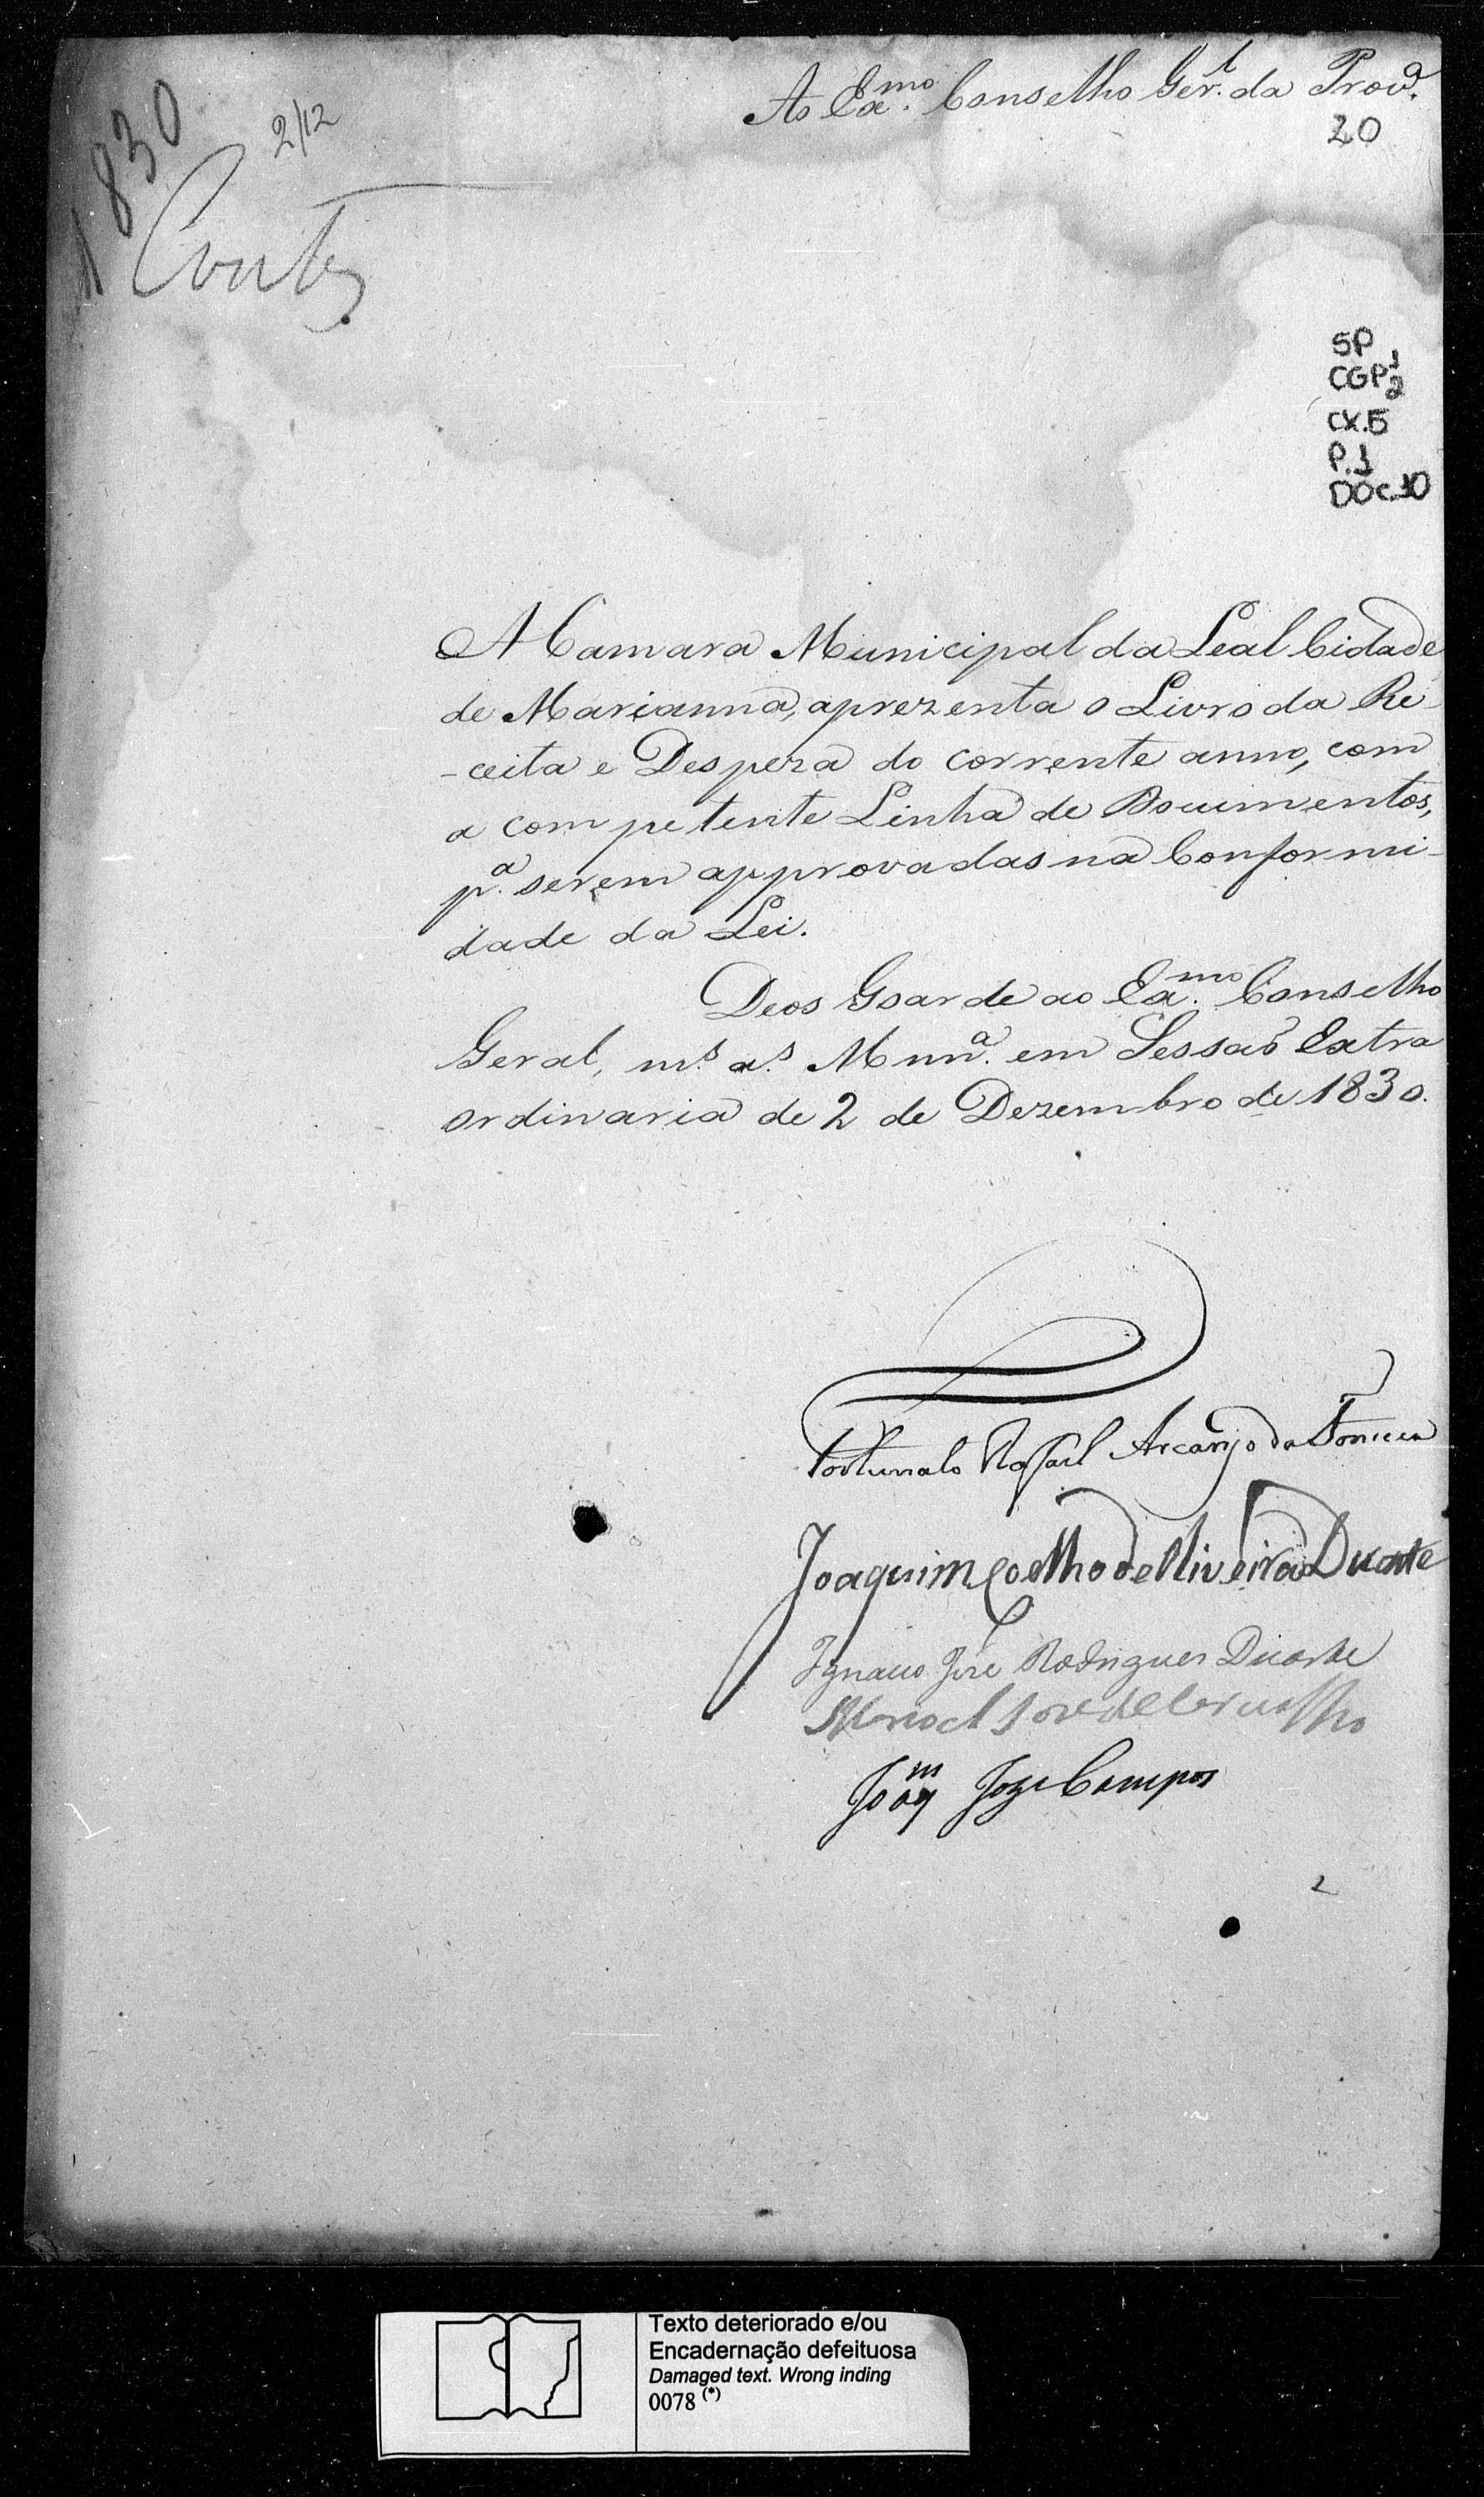 Ao Ex.mo Conselho Ger.l da Prov.a
20
1830
2/12
Contas
SP
CGP 1/2
CX.5
P.1
DOC.10
A Camara Municipal da Leal Cidade
de Marianna, aprezenta o Livro da Re-
-ceita e Despeza do corrente anno, com
a competente Linha de Documentos,
p.a serem approvadas na Conformi-
dade da Lei.
Deos Goarde ao Ex.mo Conselho
Geral, m.s a.s Mnn.a em Sessaõ Extra
ordinaria de 2 de Dezembro de 1830.
Fortunato Rafael Arcanjo da Fonceca
Joaquim Coelho de Oliveira Duarte
Ignacio José Rodrigues Duarte
Manoel Jose de Carvalho
Joaq.m Joze Campos
2
Texto deteriorado e/ou
Encadernação defeituosa
Damaged text. Wrong inding
0078 (*)